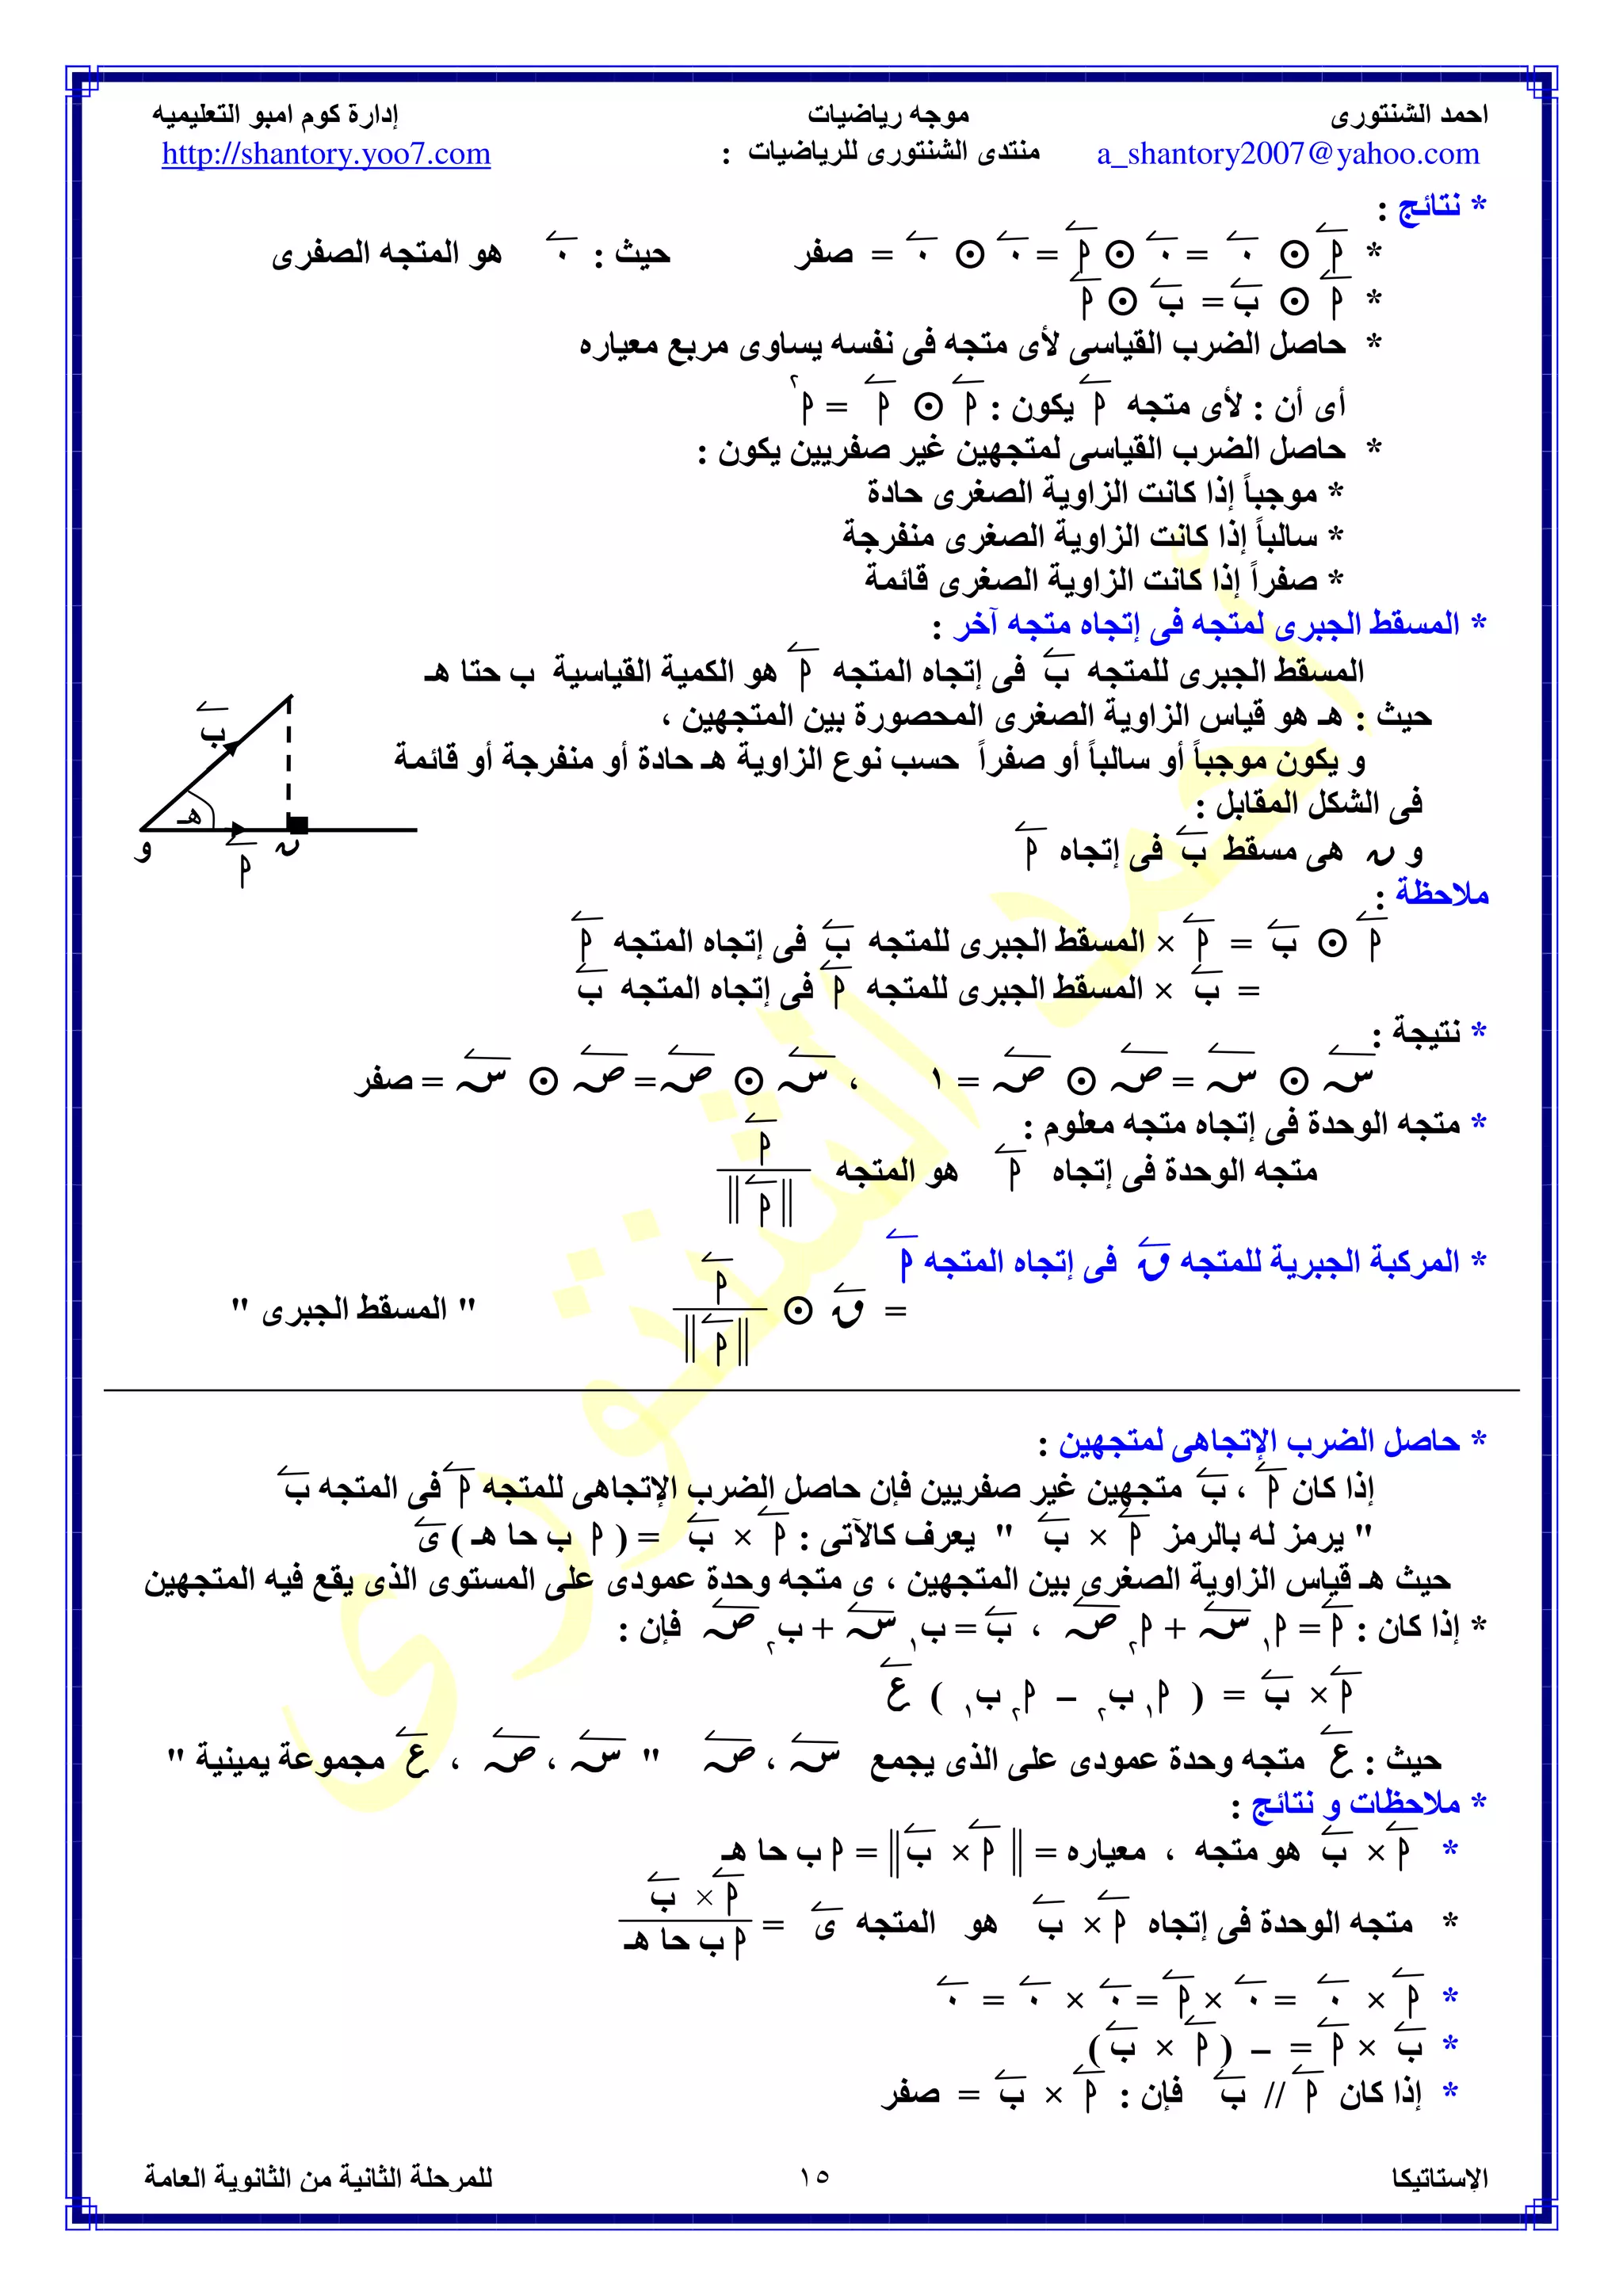 احمد الشنتورى موجه رياضيات إدارة كوم امبو التعليميه
a_shantory2007@yahoo.com منتدى الشنتورى للرياضيات : http://shantory.yoo7.com
* نتائج :
* أ⃖ ⊙ ٠⃖ = ٠⃖ ⊙ أ⃖ = ٠⃖ ⊙ ٠⃖ = صفر حيث : ٠⃖ هو المتجه الصفرى
* أ⃖ ⊙ ب⃖ = ب⃖ ⊙ أ⃖
* حاصل الضرب القياسى لأى متجه فى نفسه يساوى مربع معياره
أى أن : لأى متجه أ⃖ يكون : أ⃖ ⊙ أ⃖ = أ٢
* حاصل الضرب القياسى لمتجهين غير صفريين يكون :
* موجباً إذا كانت الزاوية الصغرى حادة
* سالباً إذا كانت الزاوية الصغرى منفرجة
* صفراً إذا كانت الزاوية الصغرى قائمة
* المسقط الجبرى لمتجه فى إتجاه متجه آخر :
المسقط الجبرى للمتجه ب⃖ فى إتجاه المتجه أ⃖ هو الكمية القياسية ب حتا هـ
حيث : هـ هو قياس الزاوية الصغرى المحصورة بين المتجهين ،
و يكون موجباً أو سالباً أو صفراً حسب نوع الزاوية هـ حادة أو منفرجة أو قائمة
فى الشكل المقابل :
و ن هى مسقط ب⃖ فى إتجاه أ⃖
ب⃖
هـ
و ن
أ⃖
ملاحظة :
أ⃖ ⊙ ب⃖ = أ⃖ × المسقط الجبرى للمتجه ب⃖ فى إتجاه المتجه أ⃖
= ب⃖ × المسقط الجبرى للمتجه أ⃖ فى إتجاه المتجه ب⃖
* نتيجة :
س⃖ ⊙ س⃖ = ص⃖ ⊙ ص⃖ = ١ ، س⃖ ⊙ ص⃖ = ص⃖ ⊙ س⃖ = صفر
* متجه الوحدة فى إتجاه متجه معلوم :
متجه الوحدة فى إتجاه أ⃖ هو المتجه أ⃖ / ‖ أ⃖ ‖
* المركبة الجبرية للمتجه ق⃖ فى إتجاه المتجه أ⃖
= ق⃖ ⊙ أ⃖ / ‖ أ⃖ ‖ " المسقط الجبرى "
* حاصل الضرب الإتجاهى لمتجهين :
إذا كان أ⃖ ، ب⃖ متجهين غير صفريين فإن حاصل الضرب الإتجاهى للمتجه أ⃖ فى المتجه ب⃖
" يرمز له بالرمز أ⃖ × ب⃖ " يعرف كالآتى : أ⃖ × ب⃖ = ( أ ب حا هـ ) ى⃖
حيث هـ قياس الزاوية الصغرى بين المتجهين ، ى متجه وحدة عمودى على المستوى الذى يقع فيه المتجهين
* إذا كان : أ⃖ = أ١ س⃖ + أ٢ ص⃖ ، ب⃖ = ب١ س⃖ + ب٢ ص⃖ فإن :
أ⃖ × ب⃖ = ( أ١ ب٢ – أ٢ ب١ ) ع⃖
حيث : ع⃖ متجه وحدة عمودى على الذى يجمع س⃖ ، ص⃖ " س⃖ ، ص⃖ ، ع⃖ مجموعة يمينية "
* ملاحظات و نتائج :
* أ⃖ × ب⃖ هو متجه ، معياره = ‖ أ⃖ × ب⃖ ‖ = أ ب حا هـ
* متجه الوحدة فى إتجاه أ⃖ × ب⃖ هو المتجه ى⃖ = أ⃖ × ب⃖ / أ ب حا هـ
* أ⃖ × ٠⃖ = ٠⃖ × أ⃖ = ٠⃖ × ٠⃖ = ٠⃖
* ب⃖ × أ⃖ = – ( أ⃖ × ب⃖ )
* إذا كان أ⃖ // ب⃖ فإن : أ⃖ × ب⃖ = صفر
الإستاتيكا ١٥ للمرحلة الثانية من الثانوية العامة
أحمد الشنتورى